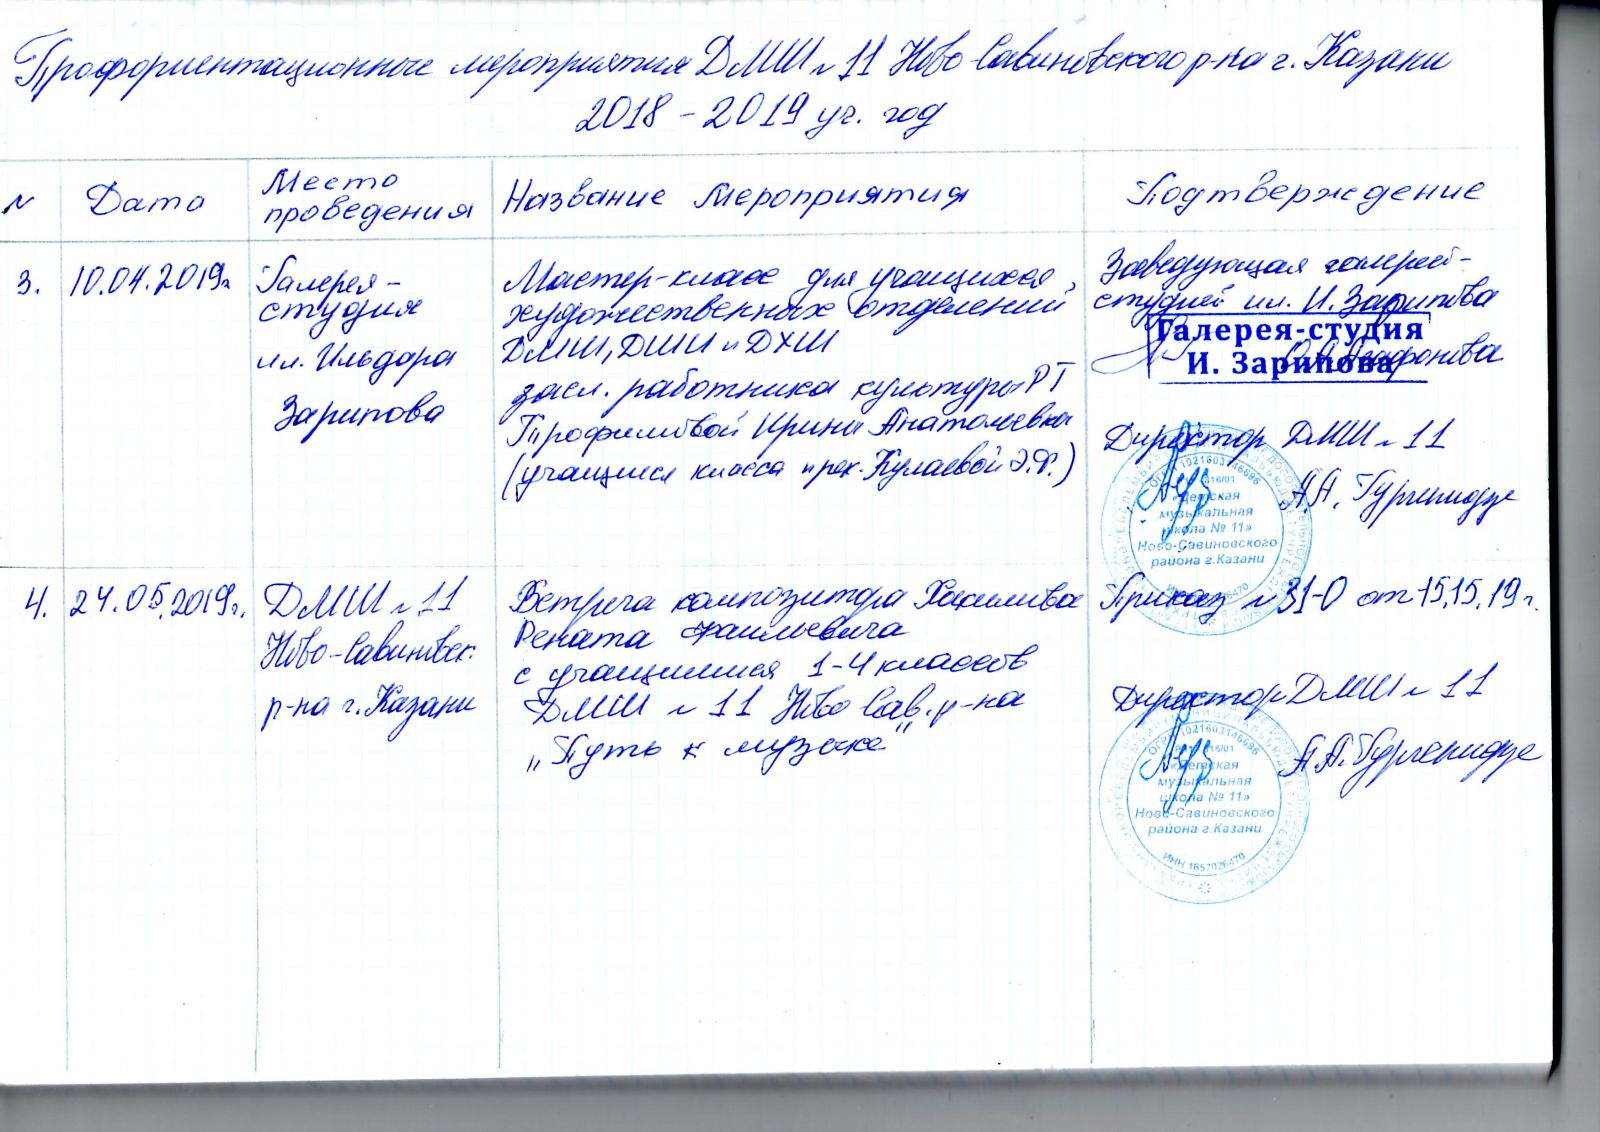 Профориентационные мероприятия ДМШ № 11 Ново-Савиновского р-на г. Казани
2018 - 2019 уч. год
№
Дата
Место
проведения
Название мероприятия
Подтверждение
3.
10.04.2019г.
Галерея-
студия
им. Ильдара
Зарипова
Мастер-класс для учащихся
художественных отделений
ДМШ, ДШИ и ДХШ
засл. работника культуры РТ
Ирины Анатольевны
(учащиеся класса преп. Кулаевой Э.Ф.)
Заведующая галереей-
студией им. И. Зарипова
Галерея-студия
И. Зарипова
Агафонова
Директор ДМШ № 11
А.А. Гургенидзе
«Детская
музыкальная
школа № 11»
Ново-Савиновского
района г.Казани
4.
24.05.2019г.
ДМШ № 11
Ново-Савиновск.
р-на г. Казани
Встреча композитора
Рената
с учащимися 1-4 классов
ДМШ № 11 Ново Сав. р-на
„Путь к музыке"
Приказ № 31-О от 15.15.19г.
Директор ДМШ № 11
А.А. Гургенидзе
ОГРН 1021603146696
«Детская
музыкальная
школа № 11»
Ново-Савиновского
района г.Казани
ИНН 1657026470